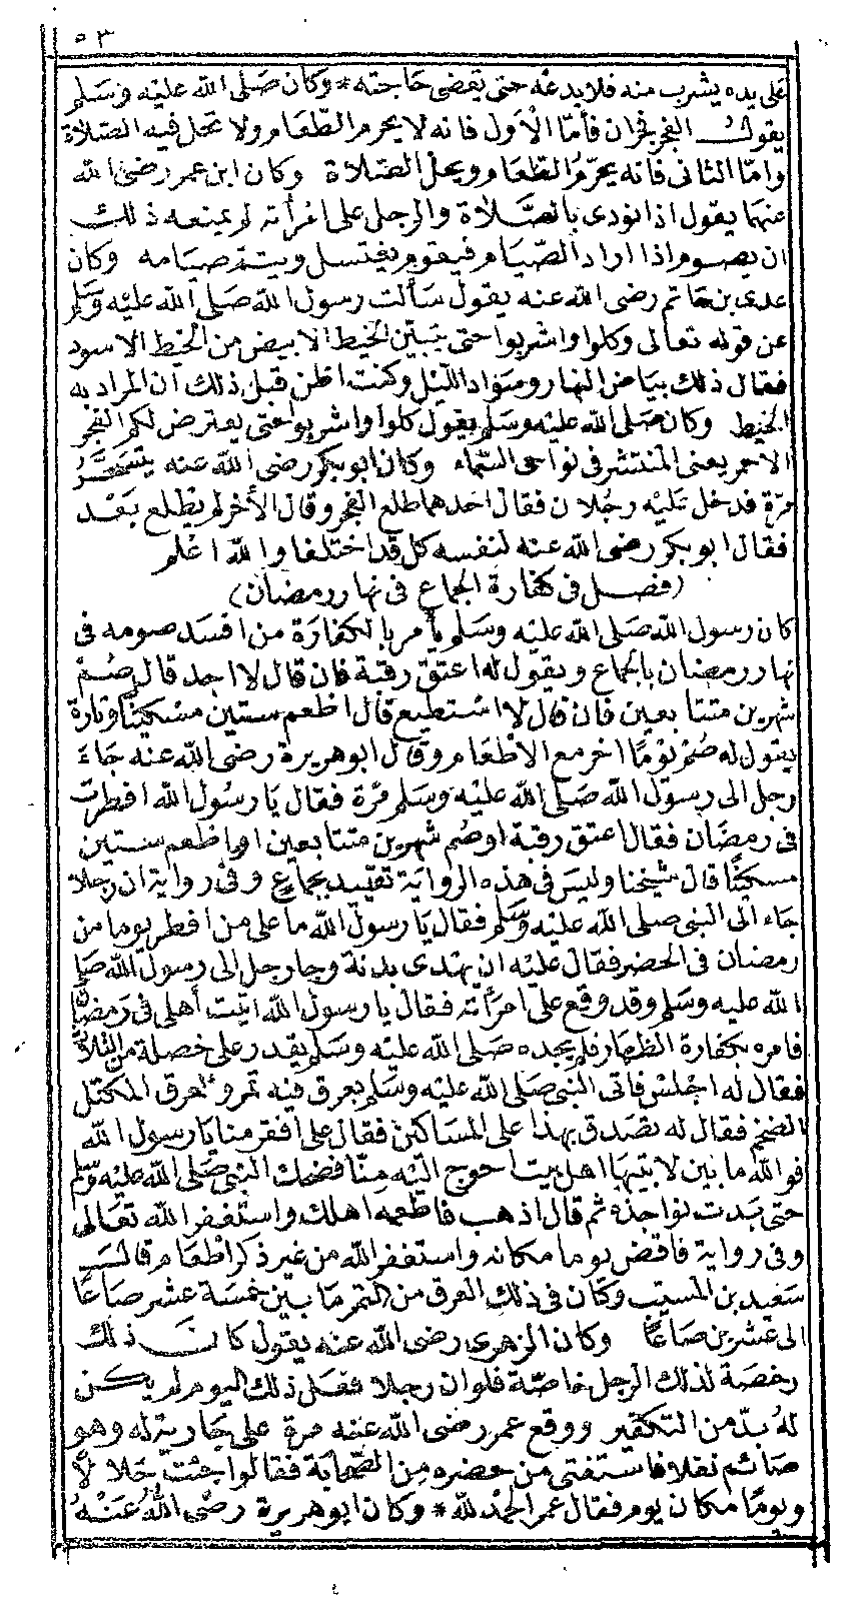 ٥٣
على يده يشرب منه فلا يدعه حتى يقضى حاجته * وكان صلى الله عليه وسلم
يقول الفجر فجران فأما الأول فانه لا يحرم الطعام ولا تحل فيه الصلاة
واما الثانى فانه يحرم الطعام ويحل الصلاة وكان ابن عمر رضى الله
عنهما يقول اذا نودى بالصلاة والرجل على امرأته لم يمنعه ذلك
ان يصوم اذا اراد الصيام فيقوم يغتسل ويتم صيامه وكان
عدى بن حاتم رضى الله عنه يقول سألت رسول الله صلى الله عليه وسلم
عن قوله تعالى وكلوا واشربوا حتى يتبين الخيط الابيض من الخيط الاسود
فقال ذلك بياض النهار وسواد الليل وكنت اظن قبل ذلك ان المراد به
الخيط وكان صلى الله عليه وسلم يقول كلوا واشربوا حتى يعترض لكم الفجر
الاحمر يعنى المنتشر فى نواحى السماء وكان ابو بكر رضى الله عنه يتسحر
مرة فدخل عليه رجلان فقال احدهما طلع الفجر وقال الأخر لم يطلع بعد
فقال ابو بكر رضى الله عنه لنفسه كل قد اختلفا والله اعلم
(فصل فى كفارة الجماع فى نهار رمضان)
كان رسول الله صلى الله عليه وسلم يأمر بالكفارة من افسد صومه فى
نهار رمضان بالجماع ويقول له اعتق رقبة فان قال لا اجد قال صم
شهرين متتابعين فان قال لا استطيع قال اطعم ستين مسكينا وتارة
يقول له صم يوما اخر مع الاطعام وقال ابو هريرة رضى الله عنه جاء
رجل الى رسول الله صلى الله عليه وسلم مرة فقال يا رسول الله افطرت
فى رمضان فقال اعتق رقبة او صم شهرين متتابعين او اطعم ستين
مسكينا قال شيخنا وليس فى هذه الرواية تقييد بجماع وفى رواية ان رجلا
جاء الى النبى صلى الله عليه وسلم فقال يا رسول الله ما على من افطر يوما من
رمضان فى الحضر فقال عليه ان يهدى بدنة وجاء رجل الى رسول الله صلى
الله عليه وسلم وقد وقع على امرأته فقال يا رسول الله اتيت أهلى فى رمضان
فامره بكفارة الظهار فلم يجده صلى الله عليه وسلم يقدر على خصلة من الثلاث
فقال له اجلس فاتى النبى صلى الله عليه وسلم بعرق فيه تمر والعرق المكتل
الضخم فقال له تصدق بهذا على المساكين فقال على افقر منا يا رسول الله
فوالله ما بين لابتيها اهل بيت احوج اليه منا فضحك النبى صلى الله عليه وسلم
حتى بدت نواجذه ثم قال اذهب فاطعمه اهلك واستغفر الله تعالى
وفى رواية فاقض يوما مكانه واستغفر الله من غير ذكر اطعام قال
سعيد بن المسيب وكان فى ذلك العرق من التمر ما بين خمسة عشر صاعا
الى عشرين صاعا وكان الزهرى رضى الله عنه يقول كان ذلك
رخصة لذلك الرجل خاصة فلو ان رجلا فعل ذلك اليوم لم يكن
له بد من التكفير ووقع عمر رضى الله عنه مرة على جارية له وهو
صائم نفلا فاستفتى من حضره من الصحابة فقالوا جئت حلالا
ويوما مكان يوم فقال عمر الحمد لله * وكان ابو هريرة رضى الله عنه